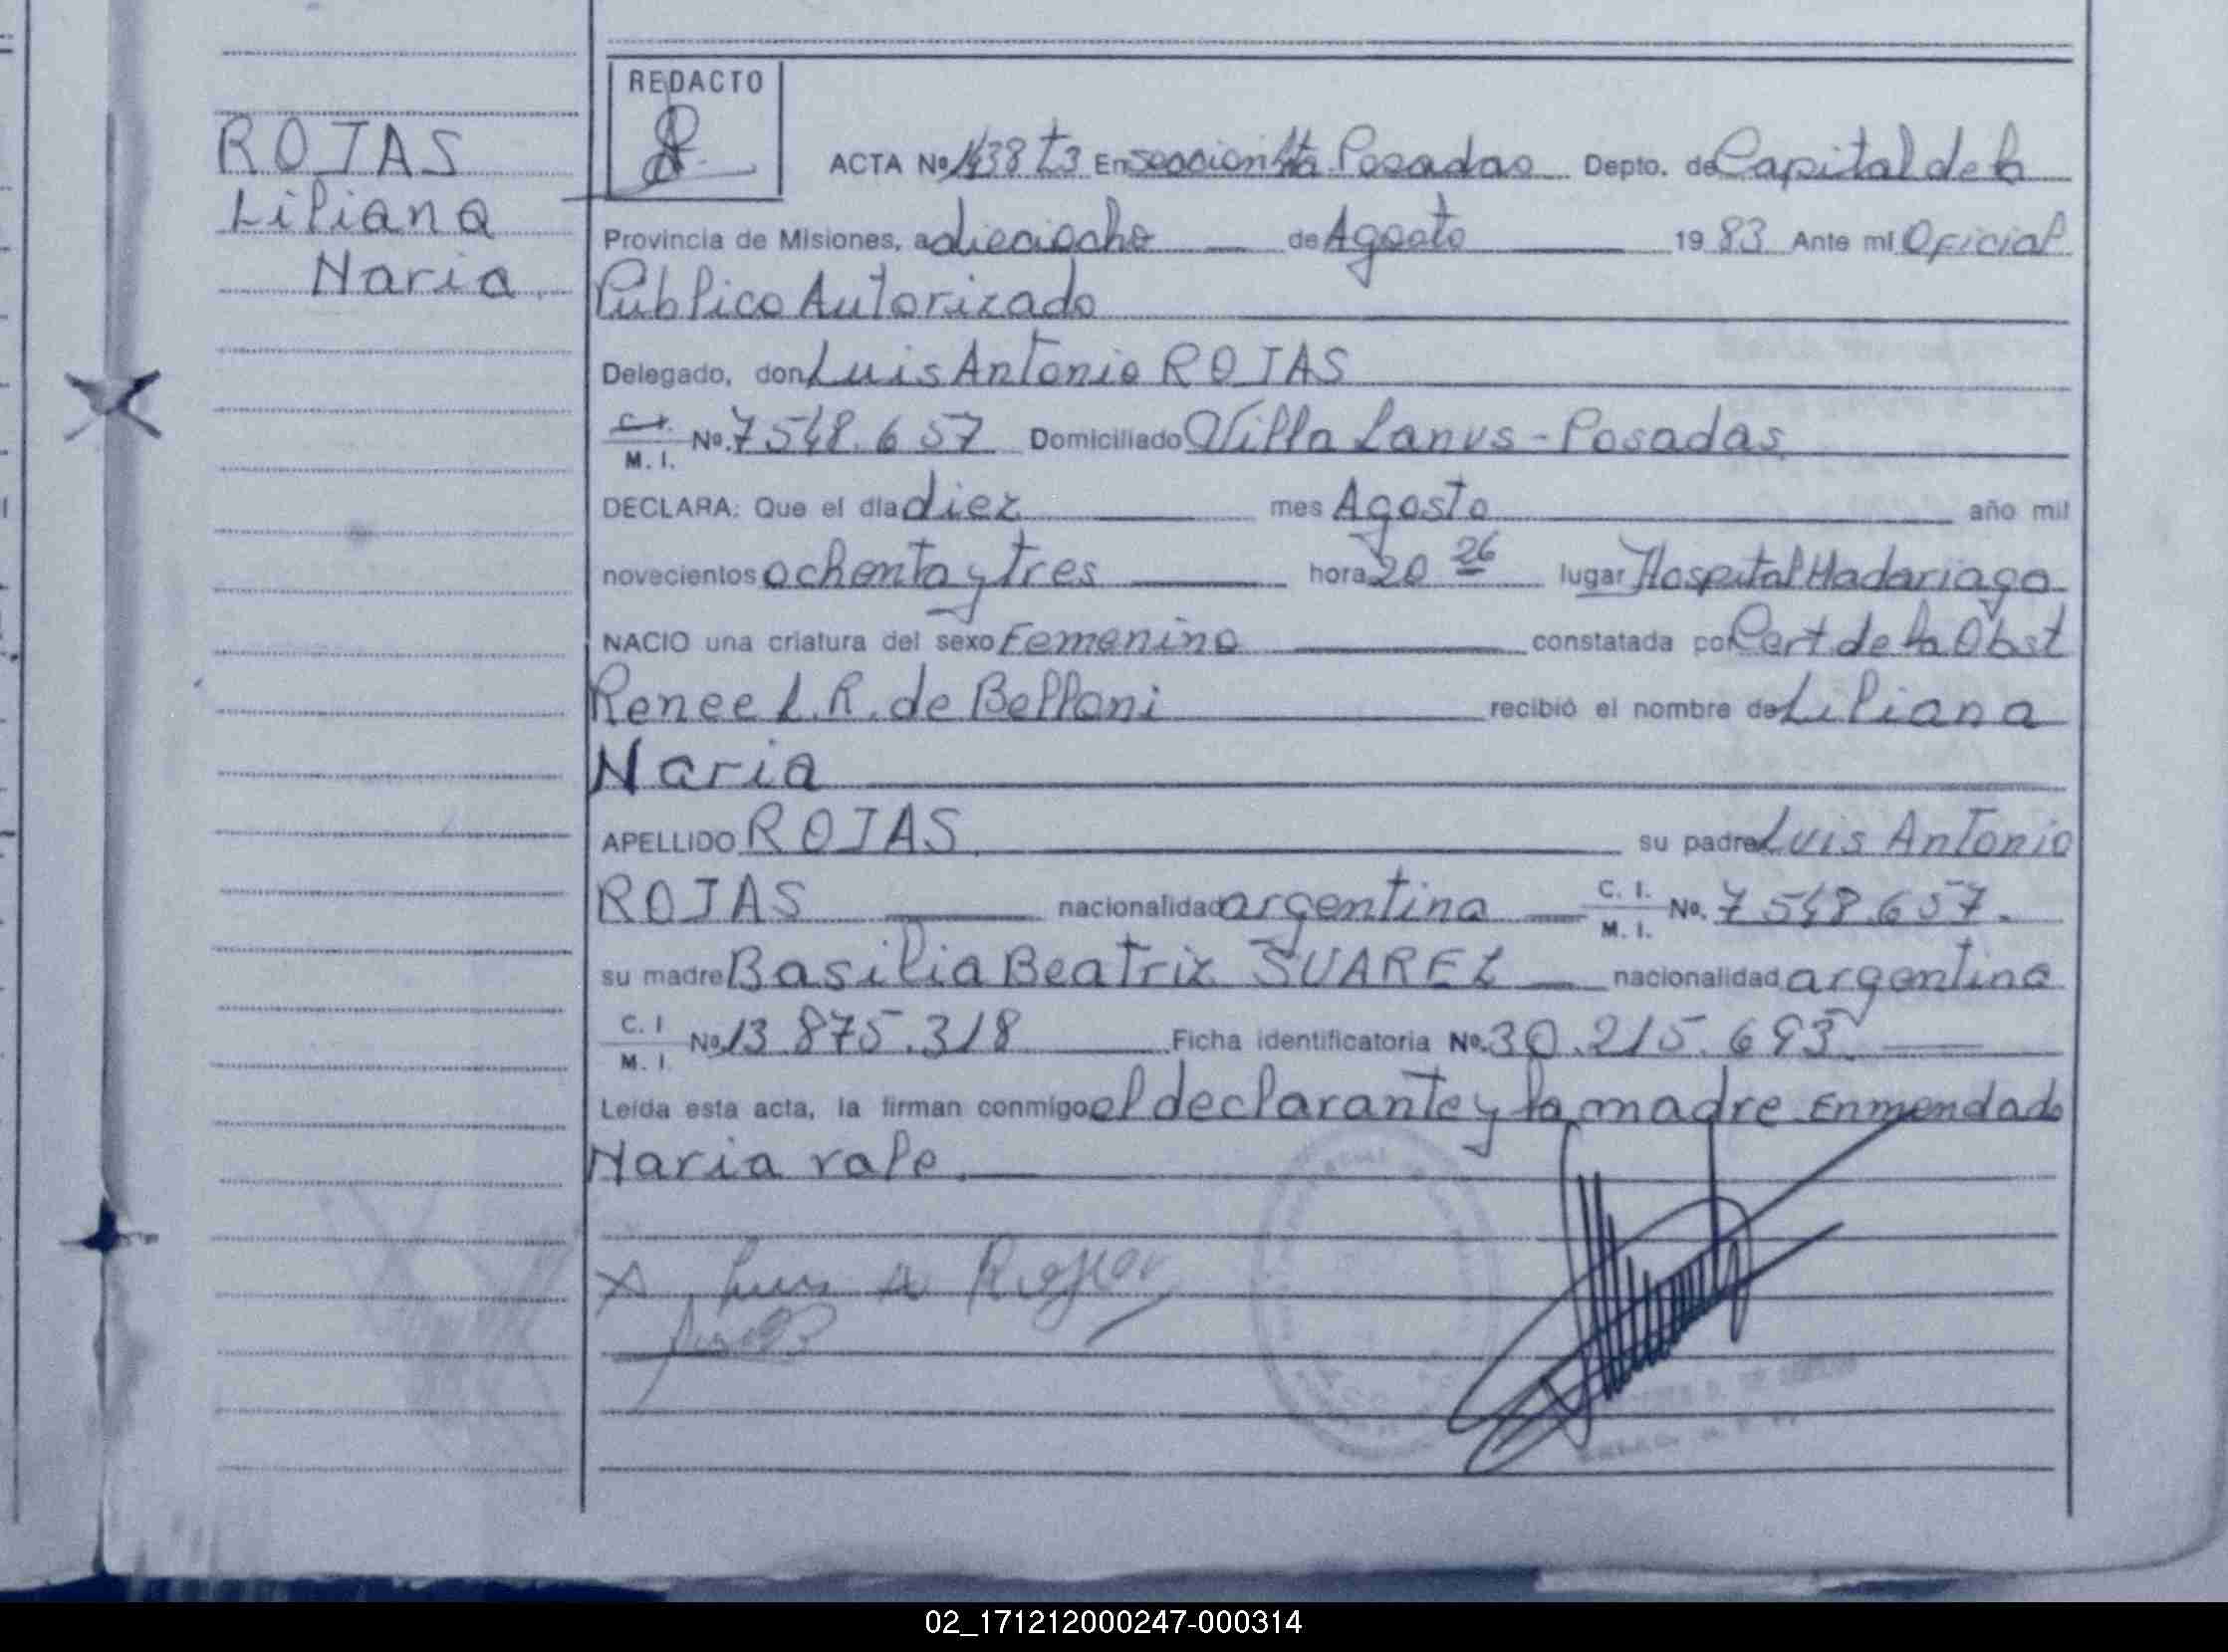 ROJAS
Liliana
Maria.
REDACTO
ACTA Nº 1438 t3 En seccion 4ta Posadas Depto. de Capital de la
Provincia de Misiones, a dieciocho de Agosto 1983 Ante mi Oficial
Público Autorizado
Delegado, don Luis Antonio ROJAS
C.I. M. I. Nº. 7548.657 Domiciliado Villa Lanus - Posadas
DECLARA: Que el día diez mes Agosto año mil
novecientos ochenta y tres hora 20 26 lugar Hospital Madariaga
NACIO una criatura del sexo Femenino constatada por Cert de la Obst
Renee L. R. de Belloni recibió el nombre de Liliana
Maria
APELLIDO ROJAS su padre Luis Antonio
ROJAS nacionalidad argentina C. I. M. I. Nº. 7548.657.
su madre Basilia Beatriz SUAREZ nacionalidad argentina
C. I M. I. Nº 13.875.318 Ficha identificatoria Nº. 30.215.693
Leída esta acta, la firman conmigo el declarante y la madre Enmendado
Maria vale.
Luis A Rojas
02_171212000247-000314